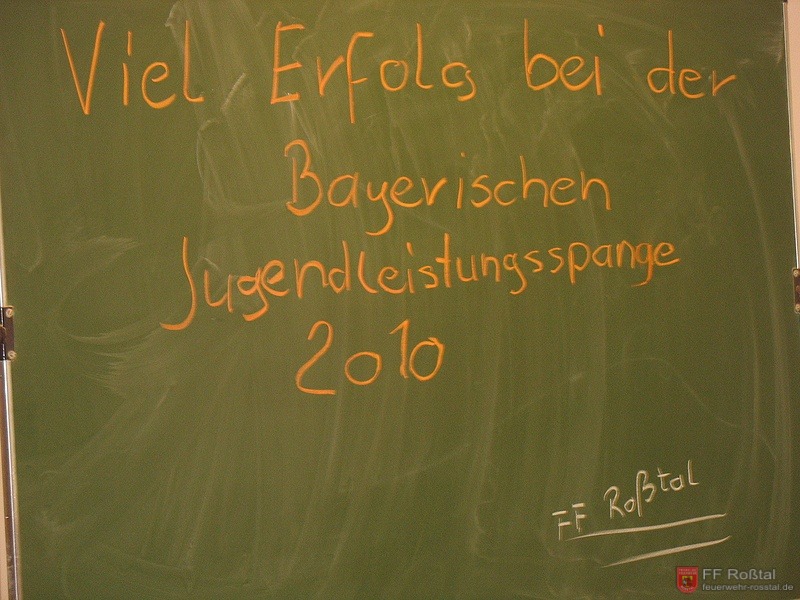 Viel Erfolg bei der
Bayerischen
Jugendleistungsspange
2010
FF Roßtal
FF Roßtal
feuerwehr-rosstal.de